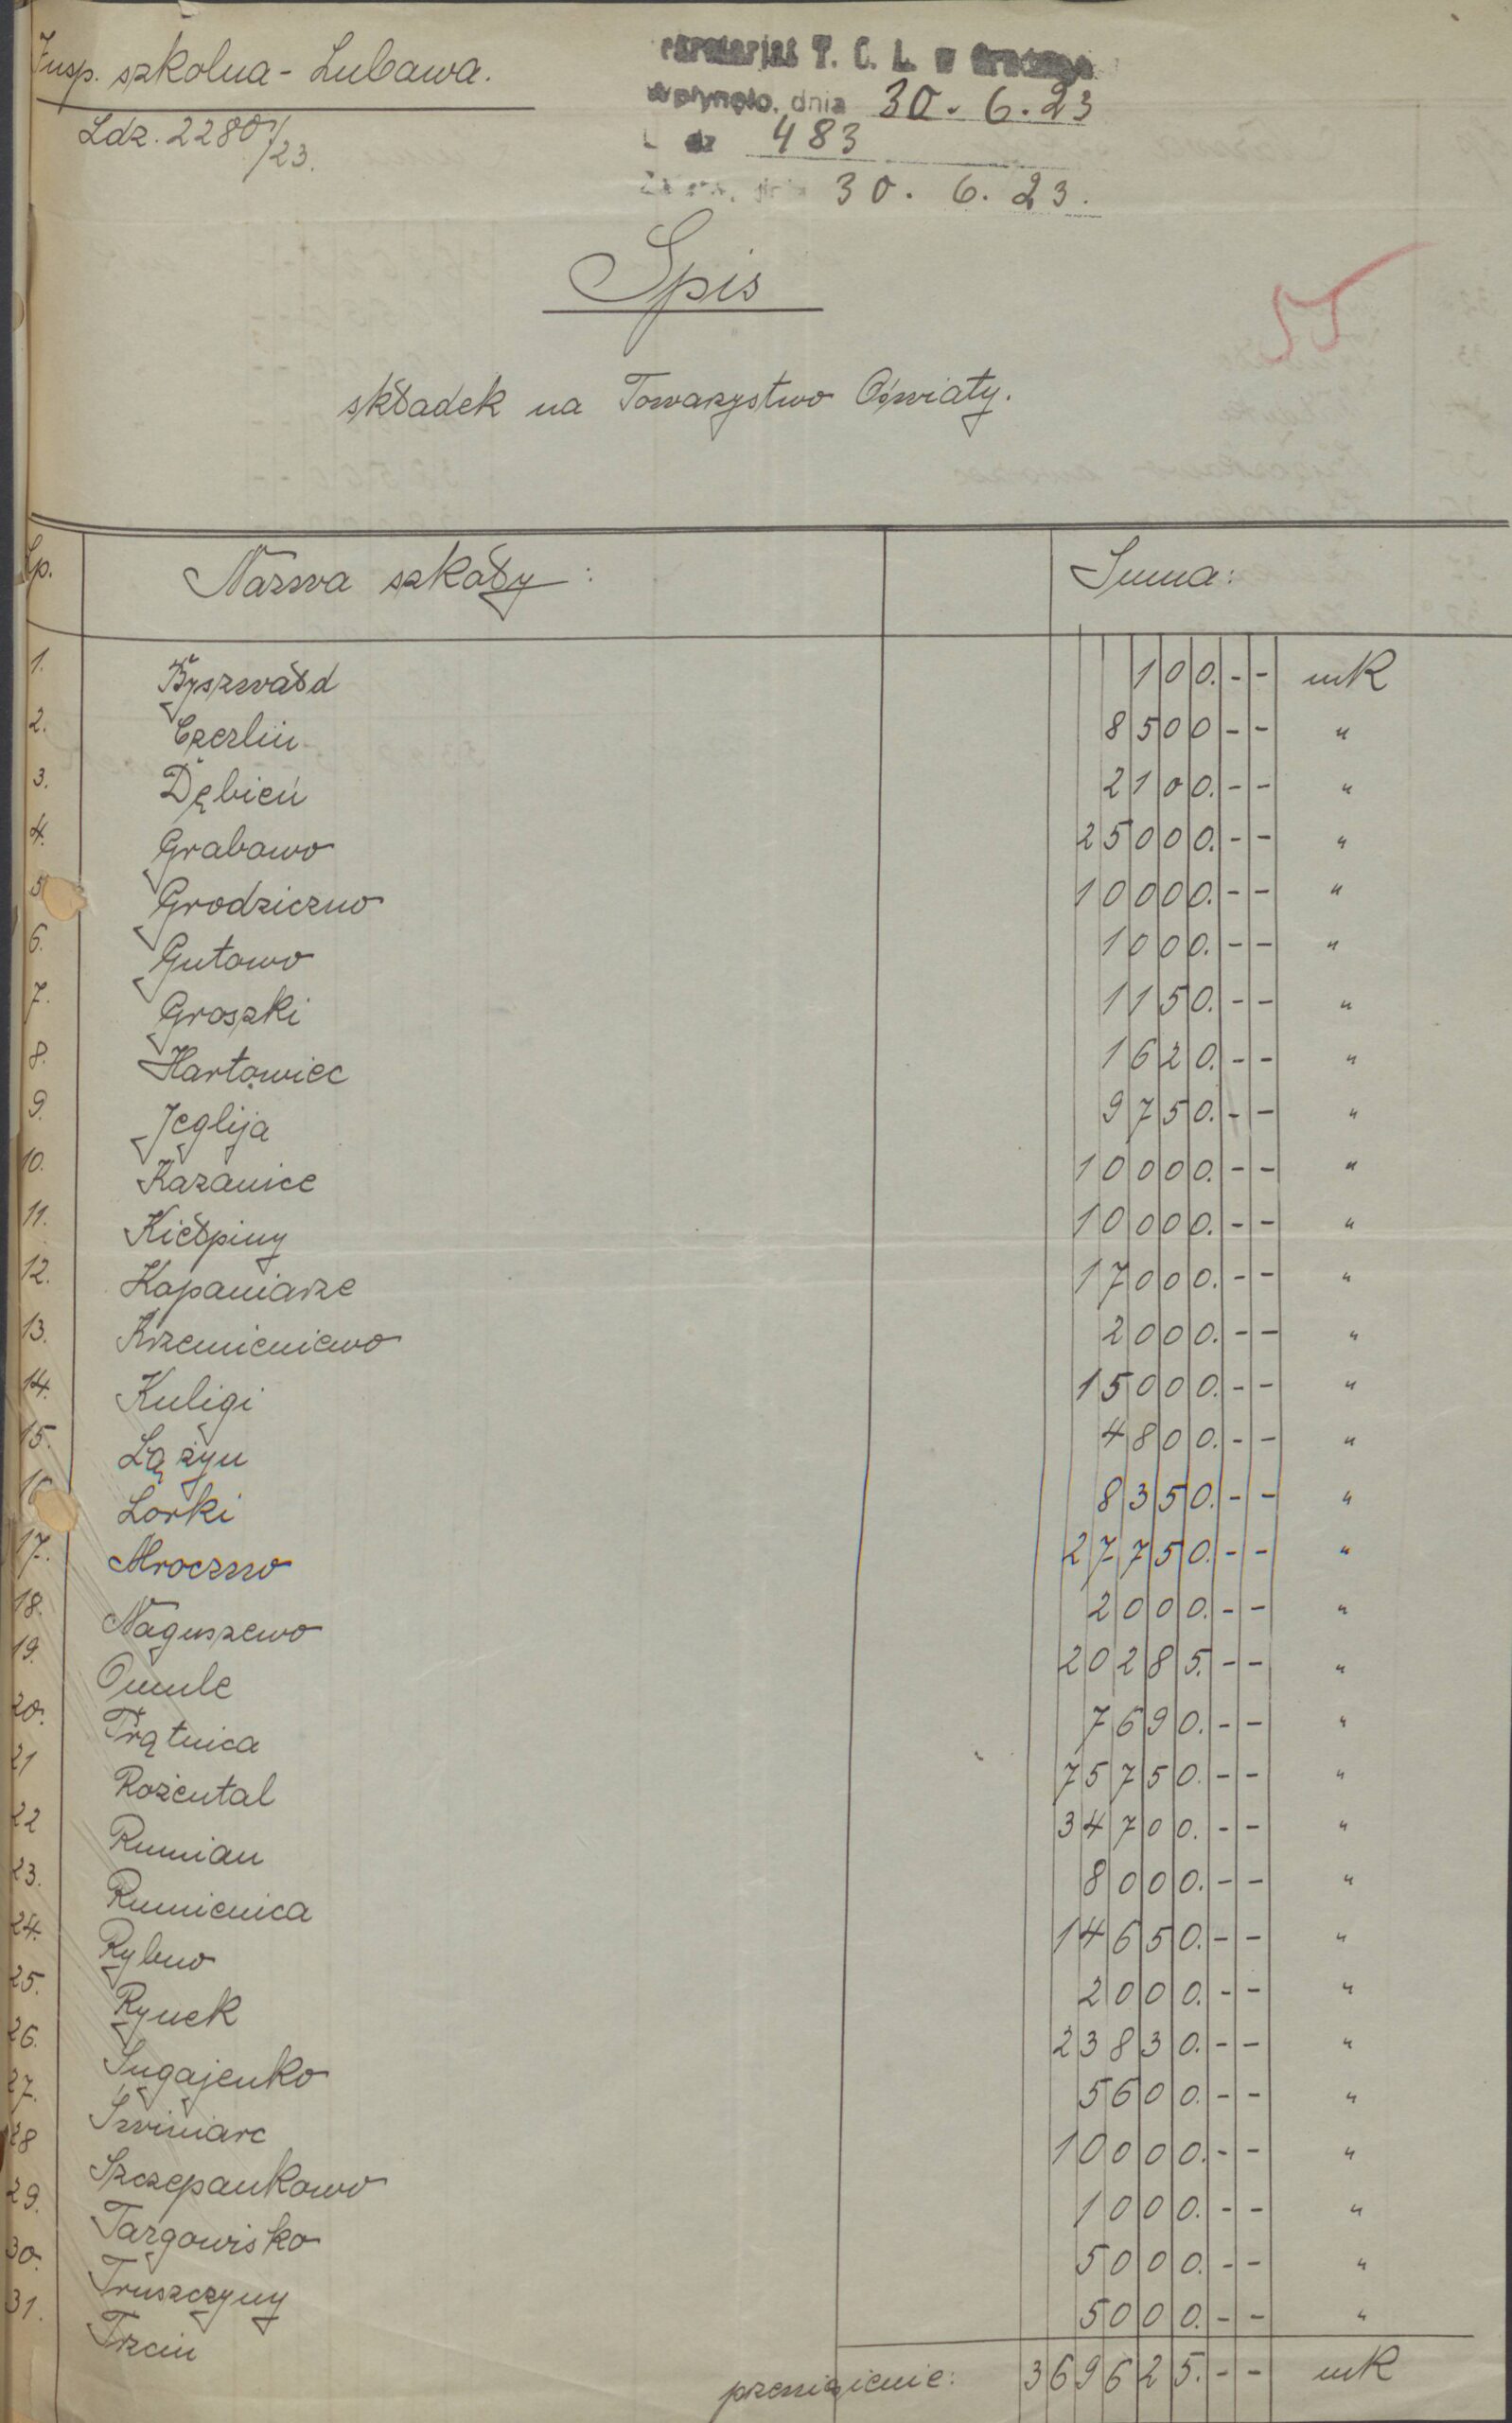 Insp. szkolna - Lubawa.
Ldz. 2280/23.
Sekretariat T. C. L. w
Wpłynęło, dnia 30. 6. 23
L dz 483
30. 6. 23.
Spis
55
składek na Towarzystwo Oświaty.
Lp. Nazwa szkoły: Suma:
1. Byszwałd 100.-- mk
2. Czerlin 8500-- "
3. Dębień 2100.-- "
4. Grabowo 25000.-- "
5. Grodziczno 10000.-- "
6. Gutowo 1000.-- "
7. Groszki 1150.-- "
8. Hartowiec 1620.-- "
9. Jeglija 9750.-- "
10. Kazanice 10000.-- "
11. Kiełpiny 10000.-- "
12. Kopaniarze 17000.-- "
13. Krzemieniewo 2000.-- "
14. Kuligi 15000.-- "
15. Lążyn 4800.-- "
16 Lorki 8350.-- "
17. Mroczno 27750.-- "
18. Naguszewo 2000.-- "
19. Omule 20285.-- "
20. Prątnica 7690.-- "
21 Rożental 75750.-- "
22 Rumian 34700.-- "
23. Rumienica 8000.-- "
24. Rybno 14650.-- "
25. Rynek 2000.-- "
26. Sugajenko 23830.-- "
27. Świniarc 5600.-- "
28 Szczepankowo 10000.-- "
29. Targowisko 1000.-- "
30. Truszczyny 5000.-- "
31. Trzcin 5000.-- "
przeniesienie: 369625.-- mk